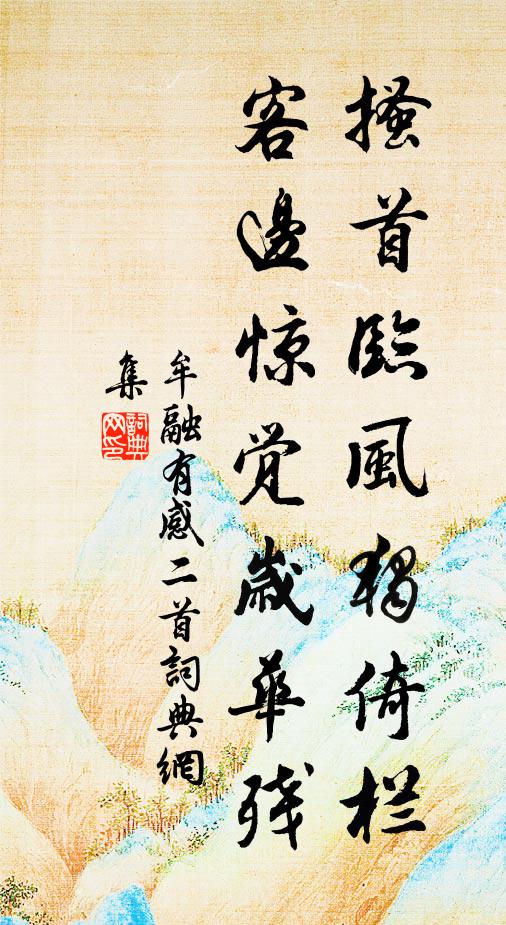 搔首臨風獨倚栏
客邊惊觉歲華残
牟融有感二首詞典網
集
詞典
网印